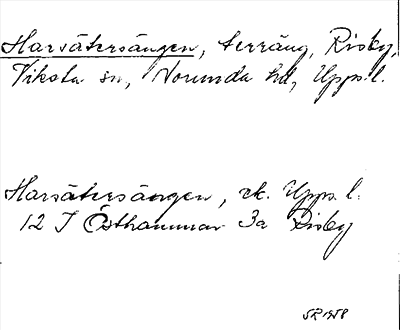 Harsätersängen, terräng, Risby,
Viksta sn, Norunda hd, Upps. l.
Harsätersängen, ek. Upps. l.
12 I Östhammar 3a Risby